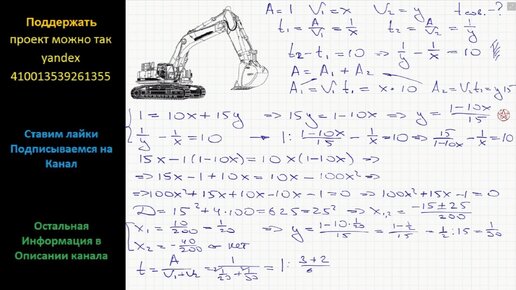 Поддержать
проект можно так
yandex
410013539261355
Ставим лайки
Подписываемся на
Канал
Остальная
Информация в
Описании канала
A=1 V₁=x V₂=y tсов.-?
t₁ = A/V₁ = 1/x t₂ = A/V₂ = 1/y
t₂-t₁=10 => 1/y - 1/x = 10
A = A₁ + A₂
A₁ = V₁t₁ = x·10 A₂ = V₂t₂ = y·15
1 = 10x + 15y => 15y = 1-10x => y = (1-10x)/15
1/y - 1/x = 10 → 1: (1-10x)/15 - 1/x = 10 => 15/(1-10x) - 1/x = 10
15x - 1(1-10x) = 10x(1-10x) =>
=> 15x - 1 + 10x = 10x - 100x² =>
=> 100x² + 15x + 10x - 10x - 1 = 0 => 100x² + 15x - 1 = 0
D = 15² + 4·100 = 625 = 25² => x₁,₂ = (-15±25)/200
x₁ = 10/200 = 1/20 => y = (1-10·1/20)/15 = (1-1/2)/15 = 1/2 : 15 = 1/30
x₂ = -40/200 - нет
t = A/(V₁+V₂) = 1/(1/20+1/30) = 1: (3+2)/6